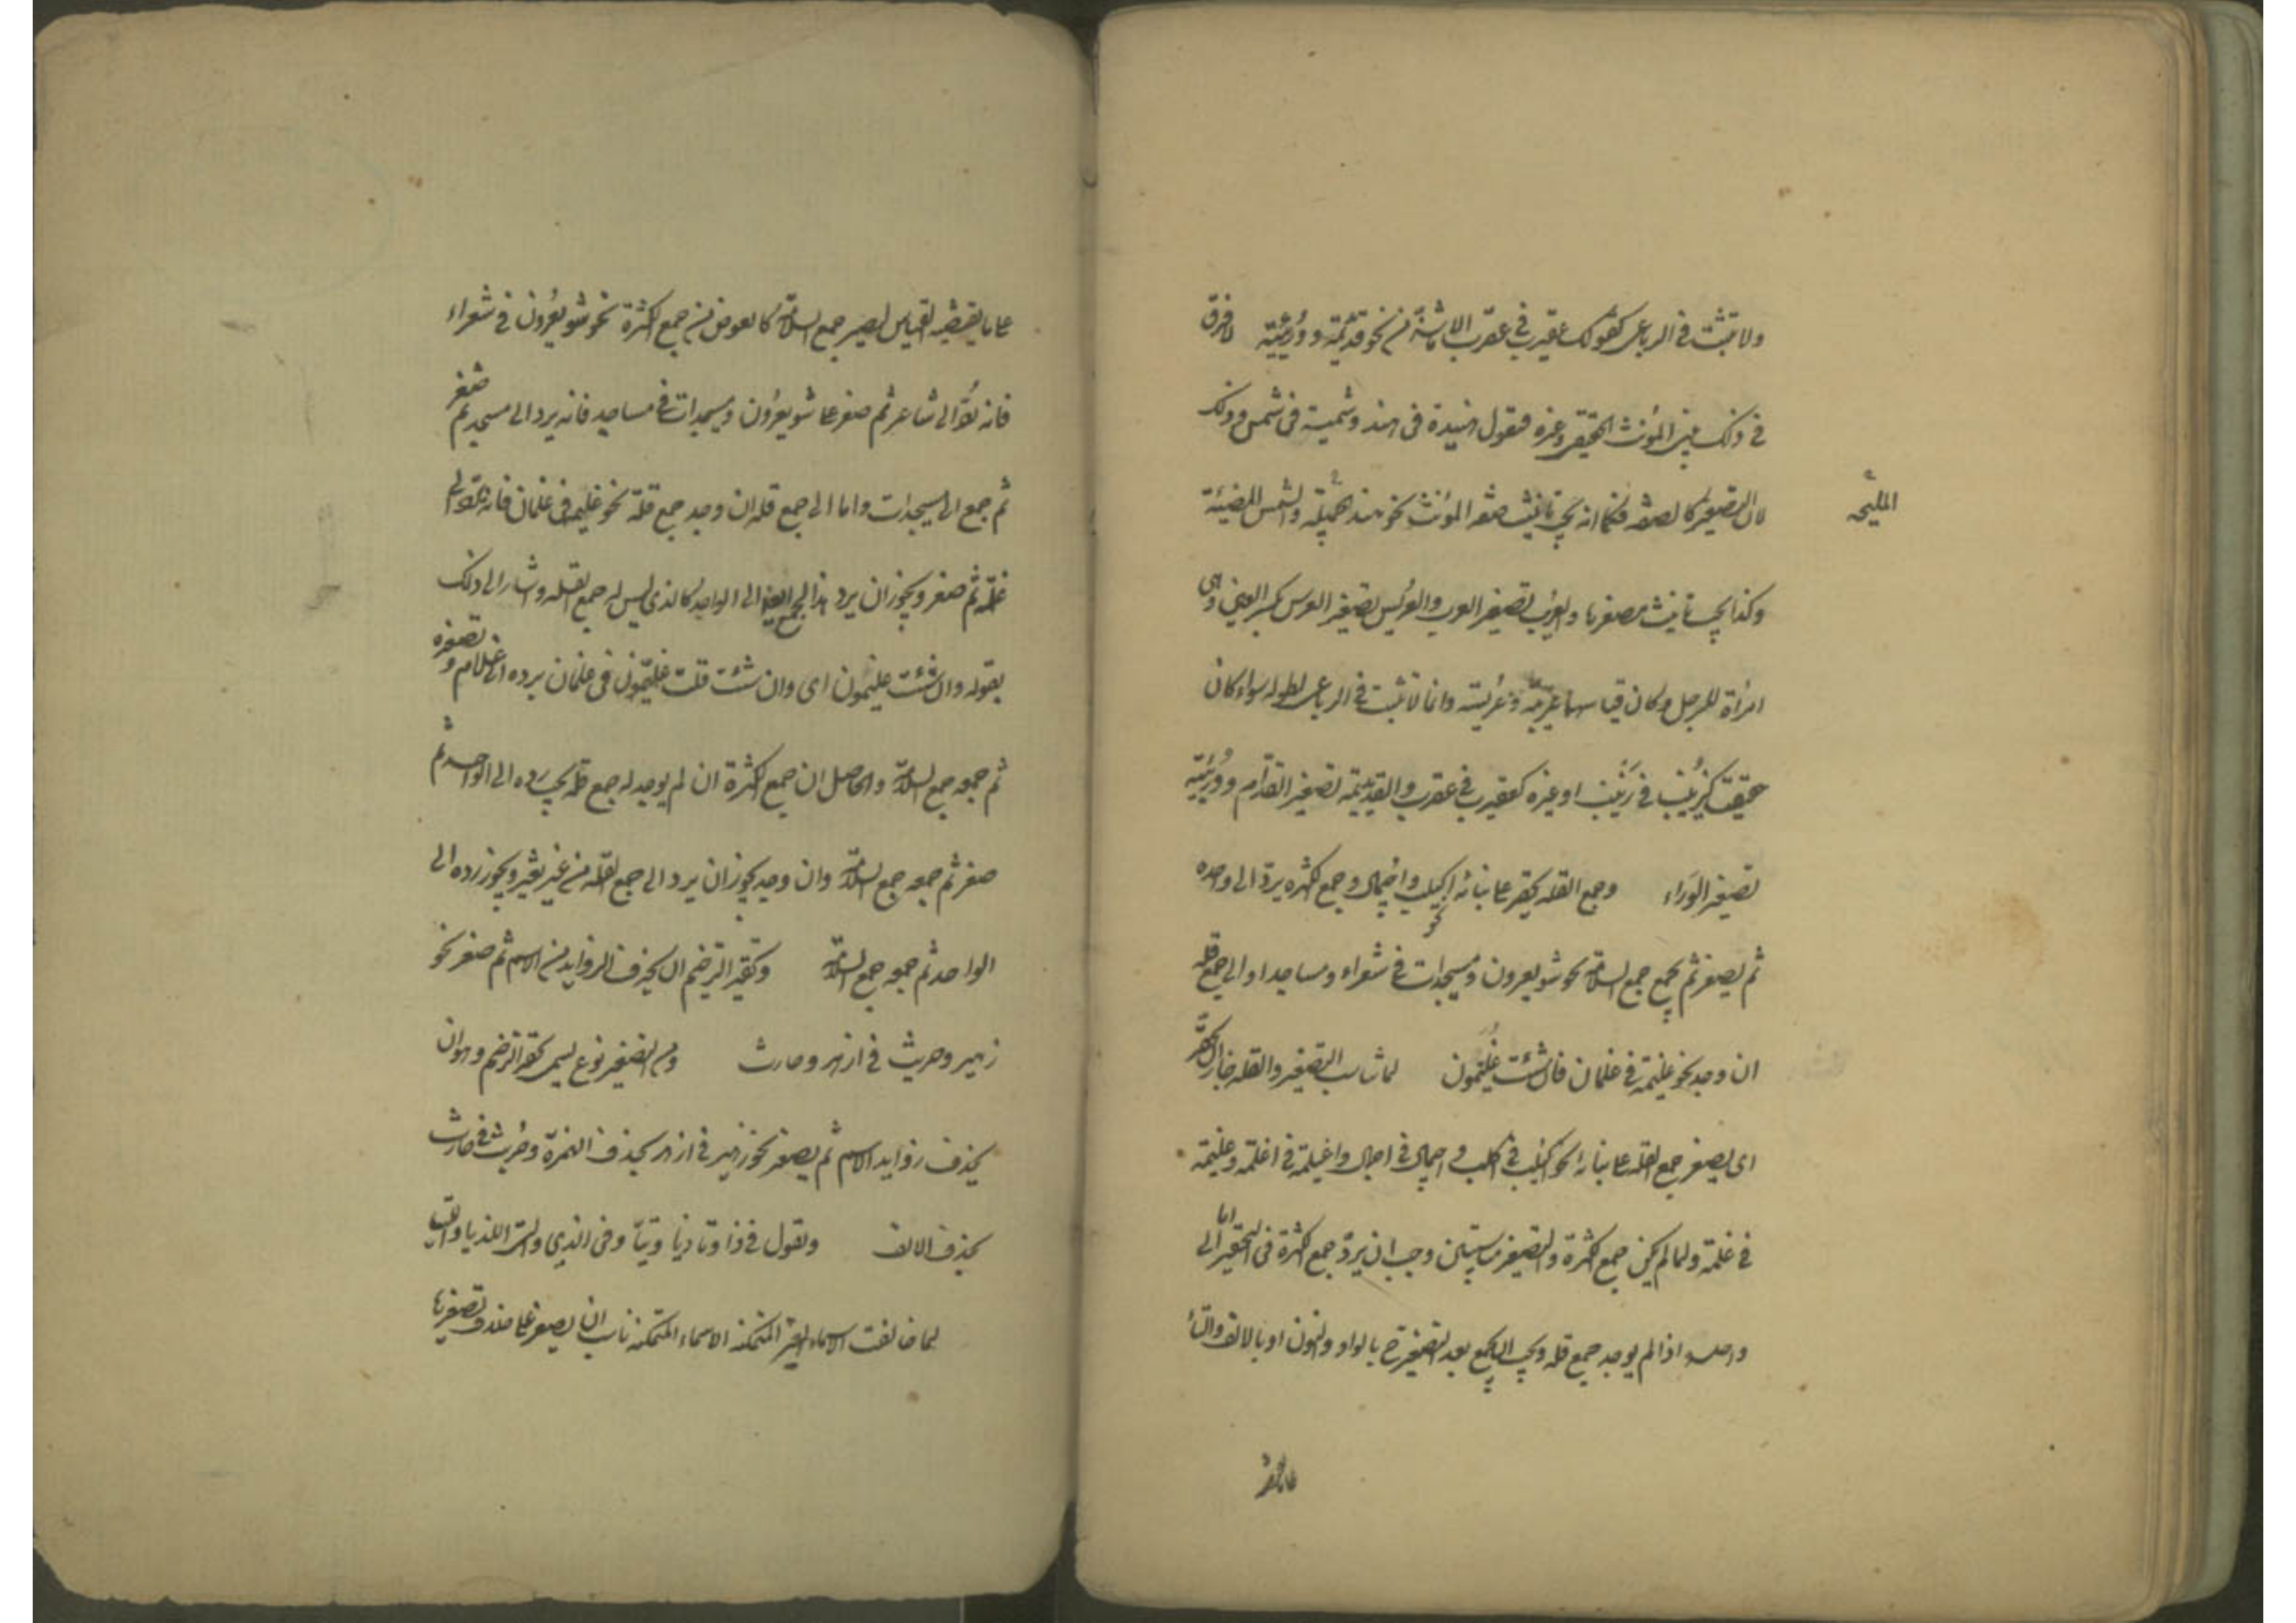 ولا تثبت في الرباعي كقولك عقيرب في عقرب الا ما شذ من نحو قديديمة ووريئة لا فرق
في ذلك بين المؤنث الحقيقي وغيره فتقول هنيدة في هند وشميسة في شمس وذلك
لان التصغير كالصفة فكما انه يجب تانيث صفة المؤنث نحو هند الجميلة والشمس المضيئة
المليحة
وكذا يجب تانيث مصغرها والعريب تصغير العرب والعريس تصغير العرس بكسر العين وهي
امرأة للرجل وكان قياسهما عريبة وعريسة وانما لا تثبت في الرباعي لطوله سواء كان
حقيقة كزيينب في زينب او غيره كعقيرب في عقرب والقديديمة تصغير القدام ووريئة
تصغير الوراء وجمع القلة يحقر على بنائه نحو اكيلب واجيمال وجمع الكثرة يرد الى واحده
ثم يصغر ثم يجمع جمع السلامة نحو شويعرون ومسيجدات في شعراء ومساجد او الى جمع قلة
ان وجد نحو غليمة في غلمان فان شئت غليمون لما تناسب التصغير والقلة جاز ان يحقر
اى يصغر جمع القلة على بنائه نحو اكيلب في اكلب واجيمال في اجمال واغيلمة في اغلمة وغليمة
في غلمة ولما لم يكن جمع الكثرة والتصغير متناسبين وجب ان يرد جمع الكثرة في التحقير اما الى
واحده اذا لم يوجد جمع قلة ويجب ان يجمع بعد التصغير بالواو والنون او بالالف والتاء
على ما يقتضيه القياس ليصير جمع السلامة كالعوض من جمع الكثرة نحو شويعرون في شعراء
فانه يرد الى شاعر ثم صغر على شويعرون ومسيجدات في مساجد فانه يرد الى مسجد ثم صغر
ثم جمع الى مسيجدات واما الى جمع قلة ان وجد جمع قلة نحو غليمة في غلمان فانه يرد الى
غلمة ثم صغر ويجوز ان يرد هذا الجمع ايضا الى الواحد كالذي ليس له جمع القلة واشار الى ذلك
بقوله وان شئت غليمون اى وان شئت قلت غليمون في غلمان برده الى غلام وتصغيره
ثم جمعه جمع السلامة والحاصل ان جمع الكثرة ان لم يوجد له جمع قلة يجب رده الى الواحد ثم
صغر ثم جمعه جمع السلامة وان وجد يجوز ان يرد الى جمع القلة من غير تغيير ويجوز رده الى
الواحد ثم جمعه جمع السلامة وتحقير الترخيم ان يحذف الزوايد من الاسم ثم صغر نحو
زهير وحريث في ازهر وحارث ومن التصغير نوع يسمى تحقير الترخيم وهو ان
يحذف زوايد الاسم ثم يصغر نحو زهير في ازهر بحذف الهمزة وحريث في حارث
بحذف الالف وتقول في ذا وتا ذيا وتيا وفى الذي والتي اللذيا واللتيا
لما خالفت الاسماء الغير المتمكنة الاسماء المتمكنة ناسب ان يصغر على خلاف تصغيرها